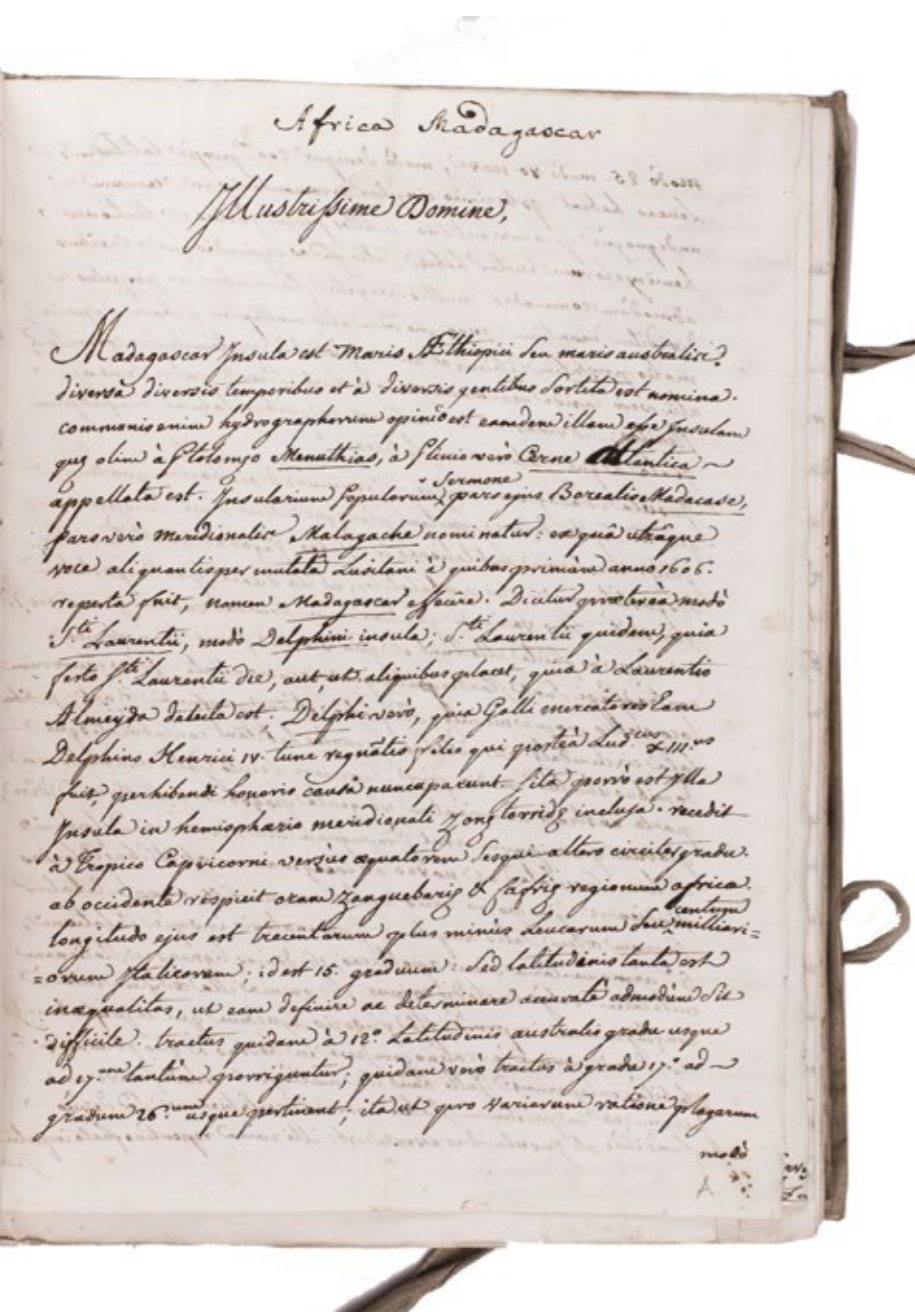 Africa Madagascar
Illustrissime Domine,
Madagascar Insula est Maris Æthiopici seu maris australis:
diversa diversis temporibus et à diversis gentibus sortita est nomina.
communis enim hydrographorum opinio est eamdem illam esse Insulam
quę olim à Ptolomęo Menuthias, à Plinio verò Cerne Atlantica ~
appellata est. Insularium Populorum sermone pars ejus Borealis Madacase,
pars verò meridionalis Malagache nominatur: ex quâ utrâque
voce aliquantisper mutatâ Lusitani à quibus primùm anno 1606.
reperta fuit, nomen Madagascar effecêre. Dicitur prætereà modò
S.ti Laurentii, modò Delphini insula; S.ti Laurentii quidem, quia
festo S.ti Laurentii die, aut, ut aliquibus placet, quia à Laurentio
Almeyda detecta est. Delphi verò, quia Galli mercatores Eam
Delphino Henrici IV. tunc regnãtis filio qui posteà Lud.cus XIII.us
fuit, perhibendi honoris causâ nuncuparunt. Sita porrò est Ylla
Insula in hemisphærio meridionali Zonę torridę inclusa. recedit
à Tropico Capricorni versus æquatorem sesqui altero circiter gradu.
ab occidente respicit oram Zanguebarię & Cafrię regionum africæ.
longitudo ejus est trecentarum plus minùs Leucarum seu centum milliari=
=orum Italicorum; id est 15. graduum: Sed latitudinis tanta est
inæqualitas, ut eam definire ac determinare accuratè admodùm sit
difficile. tractus quidam à 12.º Latitudinis australis gradu usque
ad 17.um tantùm porriguntur; quidam verò tractus à gradu 17.º ad ~
gradum 26.um usque pertinent; ita ut pro variarum ratione plagarum
modò
A